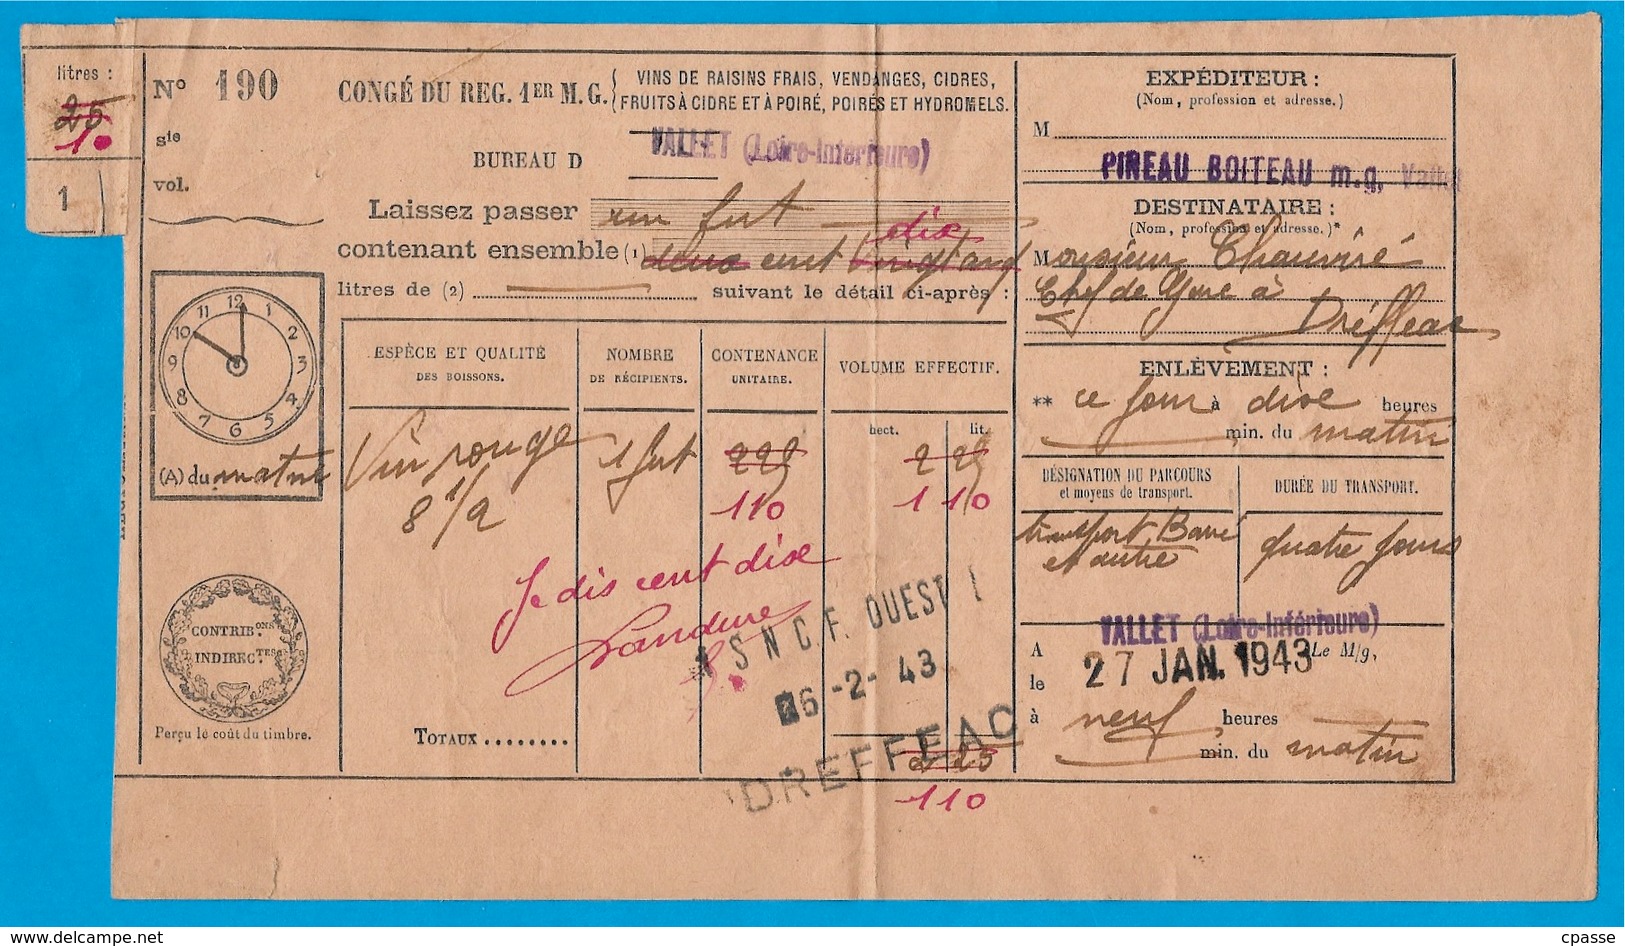 litres :
25
10
1
No 190
sie
vol.
CONGÉ DU REG. 1ER M.G.
VINS DE RAISINS FRAIS, VENDANGES, CIDRES,
FRUITS À CIDRE ET À POIRÉ, POIRÉS ET HYDROMELS.
BUREAU D VALLET (Loire-Inférieure)
Laissez passer un fut
dix
contenant ensemble (1) deux cent vingt cinq
litres de (2) suivant le détail ci-après :
12 1 2 3 4 5 6 7 8 9 10 11
(A) du matin
CONTRIB.ONS
INDIREC.TES
Perçu le coût du timbre.
ESPÈCE ET QUALITÉ
DES BOISSONS.
NOMBRE
DE RÉCIPIENTS.
CONTENANCE
UNITAIRE.
VOLUME EFFECTIF.
hect. lit.
Vin rouge 1 fut 225 2 25
8 1/2 110 1 10
Je dis cent dix
S N C F. OUEST
6 -2- 43
DREFFEAC
TOTAUX ........
2 25
110
EXPÉDITEUR :
(Nom, profession et adresse.)
M
PINEAU BOITEAU m.g, Vallet
DESTINATAIRE :
(Nom, profession et adresse.)*
Monsieur Chauviré
Chef de Gare à
Dréffeac
ENLÈVEMENT :
** ce jour à dixe heures
min. du matin
DÉSIGNATION DU PARCOURS
et moyens de transport.
DURÉE DU TRANSPORT.
transport Barré
et autre
quatre jours
VALLET (Loire-Inférieure)
A Le M/g,
le 27 JAN. 1943
à neuf heures
min. du matin
cpasse